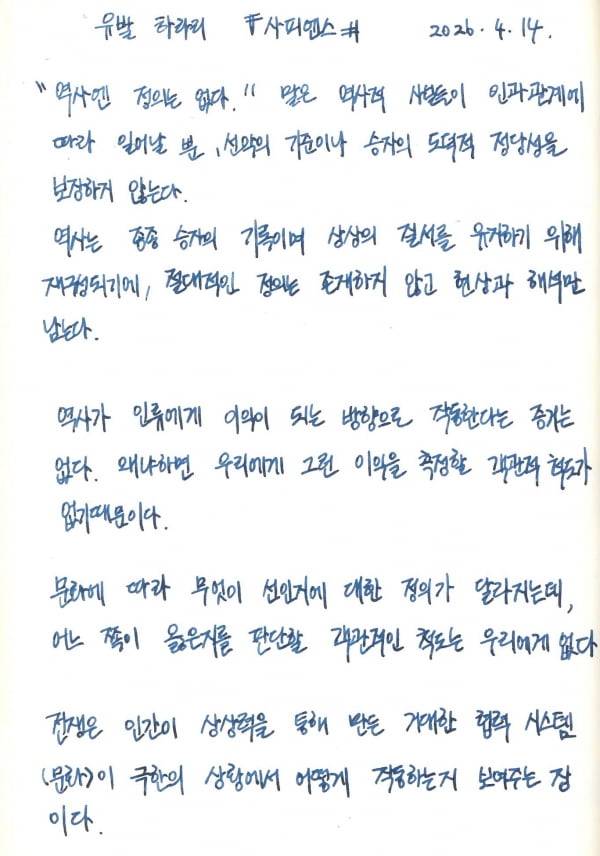 유발 하라리 #사피엔스# 2026. 4. 14.
"역사엔 정의는 없다." 말은 역사적 사건들이 인과관계에
따라 일어날 뿐, 선악의 기준이나 승자의 도덕적 정당성을
보장하지 않는다.
역사는 종종 승자의 기록이며 상상의 질서를 유지하기 위해
재구성되기에, 절대적인 정의는 존재하지 않고 현상과 해석만
남는다.
역사가 인류에게 이익이 되는 방향으로 작동한다는 증거는
없다. 왜냐하면 우리에게 그런 이익을 측정할 객관적 척도가
없기때문이다.
문화에 따라 무엇이 선인지에 대한 정의가 달라지는데,
어느 쪽이 옳은지를 판단할 객관적인 척도는 우리에게 없다
전쟁은 인간이 상상력을 통해 만든 거대한 협력 시스템
(문화)이 극한의 상황에서 어떻게 작동하는지 보여주는 장
이다.